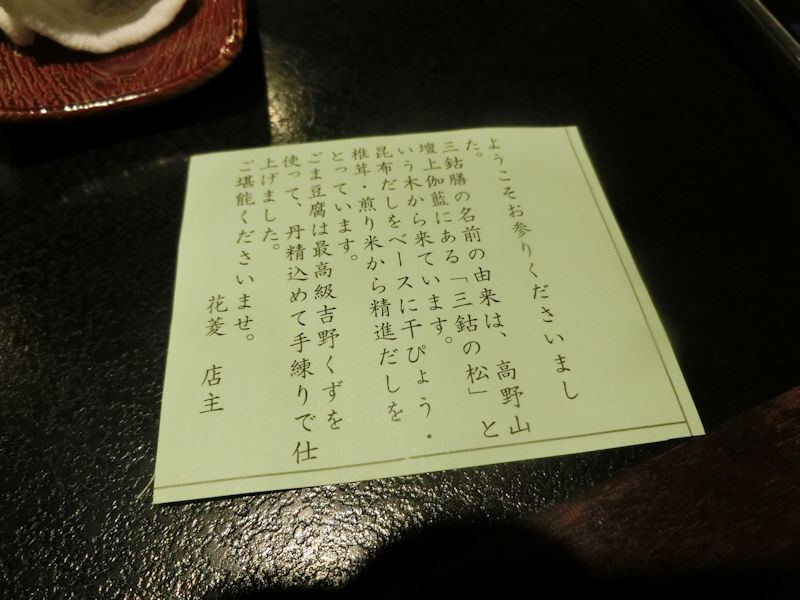 ようこそお参りくださいまし
た。
三鈷膳の名前の由来は、高野山
壇上伽藍にある「三鈷の松」と
いう木から来ています。
昆布だしをベースに干ぴょう・
椎茸・煎り米から精進だしを
とっています。
ごま豆腐は最高級吉野くずを
使って、丹精込めて手練りで仕
上げました。
ご堪能くださいませ。
花菱 店主